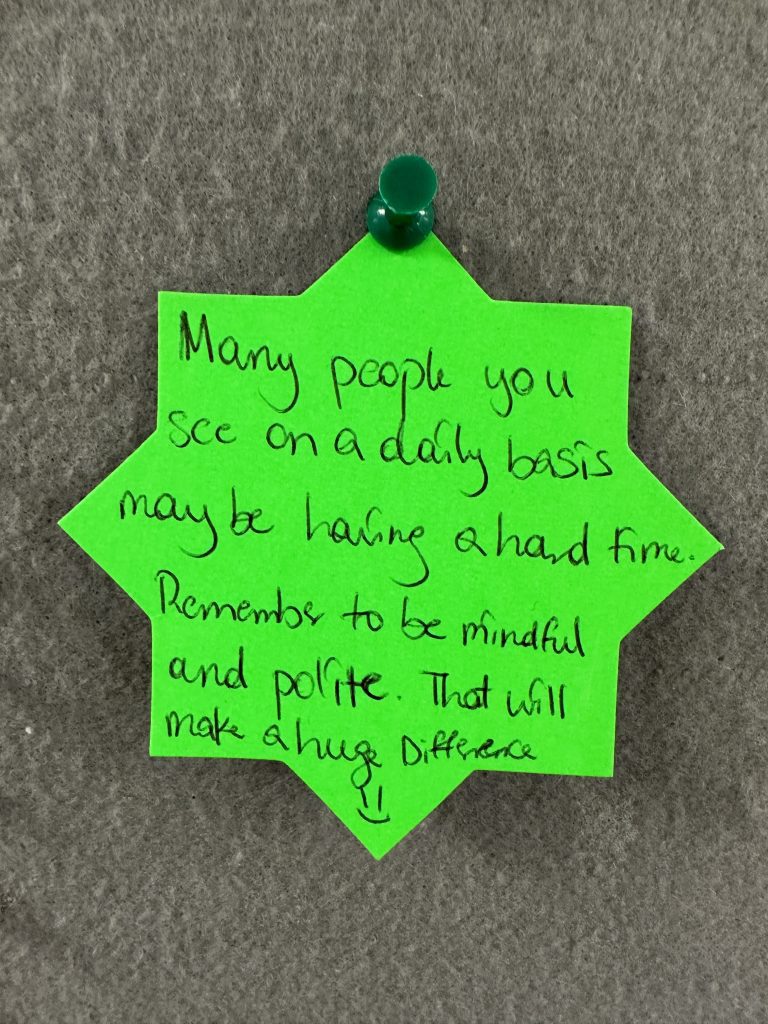 Many people you
see on a daily basis
may be having a hard time.
Remember to be mindful
and polite. That will
make a huge Difference